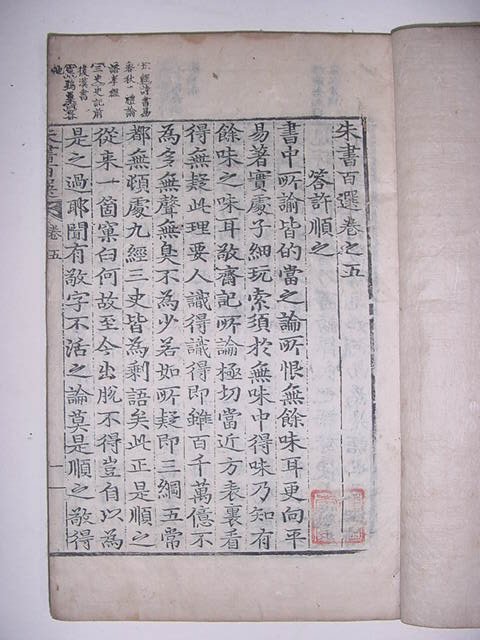 朱書百選卷之五
答許順之
書中所諭皆的當之論所恨無餘味耳更向平
易著實處子細玩索須於無味中得味乃知有
餘味之味耳敬齋記所論極切當近方表裏看
得無疑此理要人識得識得即雖百千萬億不
為多無聲無臭不為少若如所疑即三綱五常
都無頓處九經三史皆為剩語矣此正是順之
從來一箇窠臼何故至今出脫不得豈自以為
是之過耶聞有敬字不活之論莫是順之敬得
朱書百選 卷五 一
經詩書易
春秋 禮論
語孝經
三史史記前
後漢書